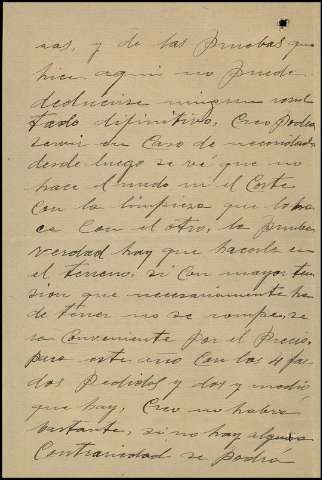 ras, y de las pruebas que
hice aqui no puede
deducirse ningun resul
tado difinitivo, Creo podra
servir en Caso de necesidad
desde luego se vé que no
hace el nudo ni el Corte
Con la limpieza que lo ha
ce Con el otro, la prueba
verdad hay que hacerla en
el terreno, si Con mayor ten
sion que necesariamente ha
de tener no se rompe, se
ra Conveniente por el precio,
para este año Con los 4 far
dos pedidos y dos y medio
que hay, Creo no habra
bastante, si no hay alguna
Contrariedad se podrá